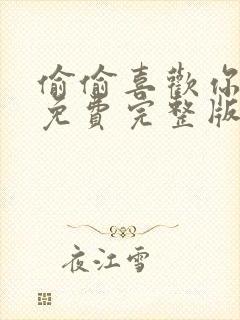 偷偷喜歡你
免費完整版
夜江雪